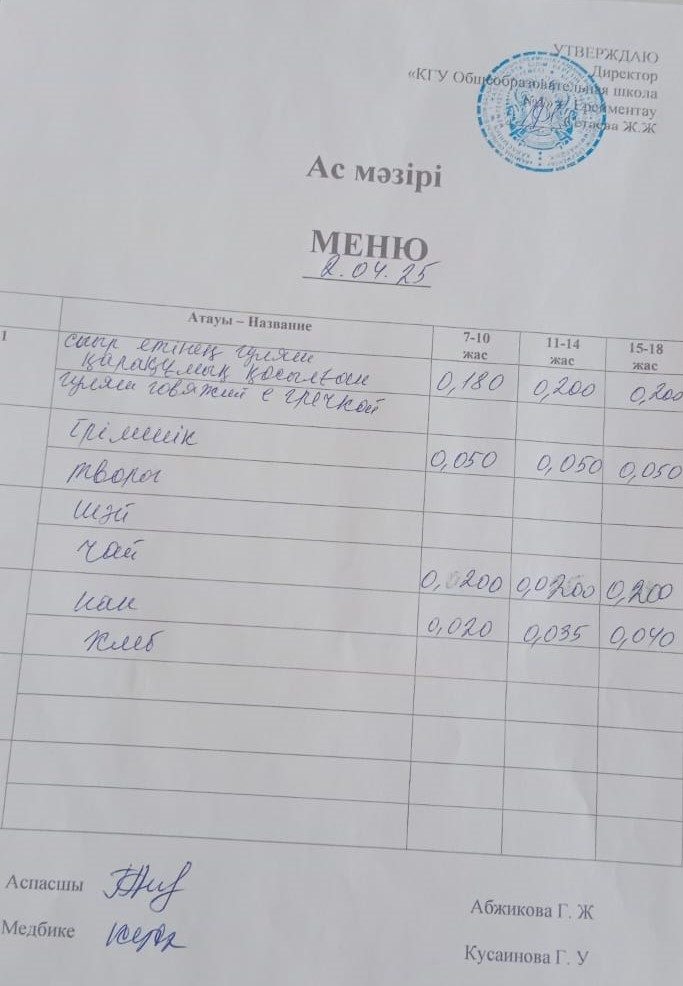 УТВЕРЖДАЮ
Директор
«КГУ Общеобразовательная школа
Ерейментау
Сетаева Ж.Ж
Ас мәзірі
МЕНЮ
2.04.25
Атауы – Название 7-10 жас 11-14 жас 15-18 жас
1 сиыр етінің гуляш
қарақұмық қосылған 0,180 0,200 0,200
гуляш говяжий с гречкой
Ірімшік
творог 0,050 0,050 0,050
шәй
чай
0,0200 0,0200 0,200
нан
хлеб 0,020 0,035 0,040
Аспасшы Абжикова Г. Ж
Медбике Кусаинова Г. У